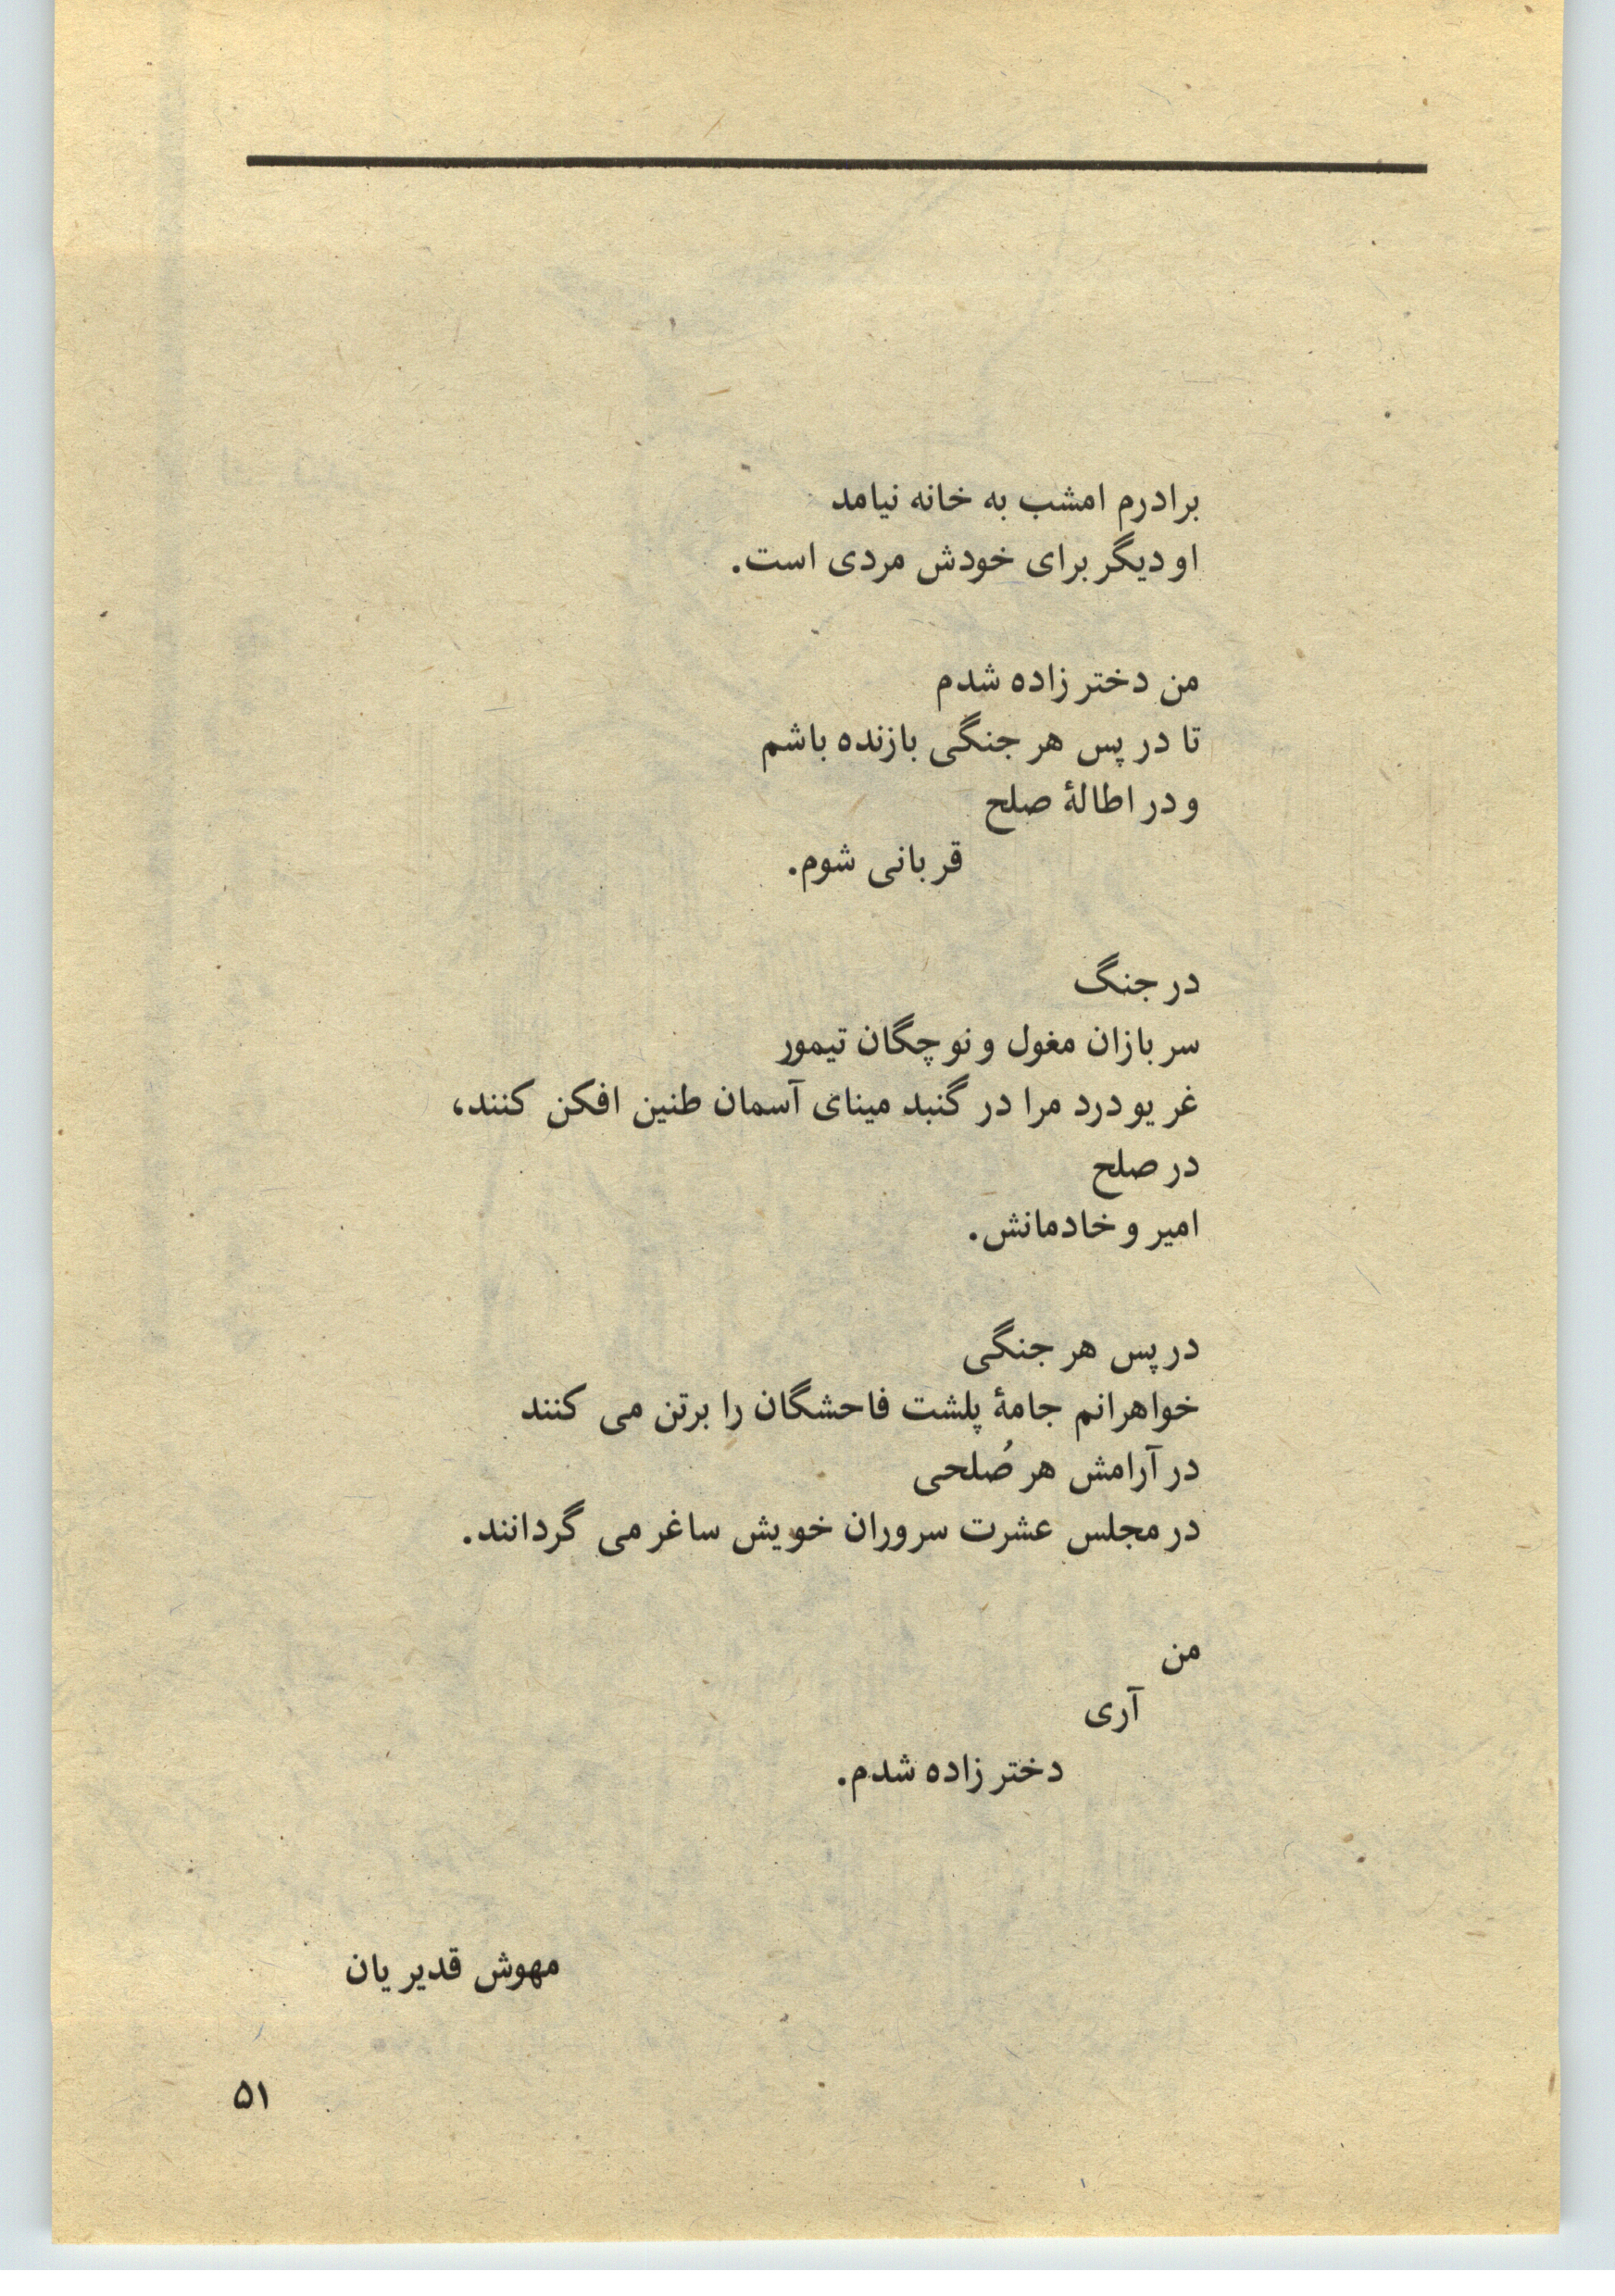 برادرم امشب به خانه نیامد
او دیگر برای خودش مردی است.
من دختر زاده شدم
تا در پس هر جنگی بازنده باشم
و در اطالهٔ صلح
قربانی شوم.
در جنگ
سربازان مغول و نوچگان تیمور
غریو درد مرا در گنبد مینای آسمان طنین افکن کنند،
در صلح
امیر و خادمانش.
در پس هر جنگی
خواهرانم جامهٔ پلشت فاحشگان را برتن می کنند
در آرامش هر صُلحی
در مجلس عشرت سروران خویش ساغر می گردانند.
من
آری
دختر زاده شدم.
مهوش قدیریان
۵۱